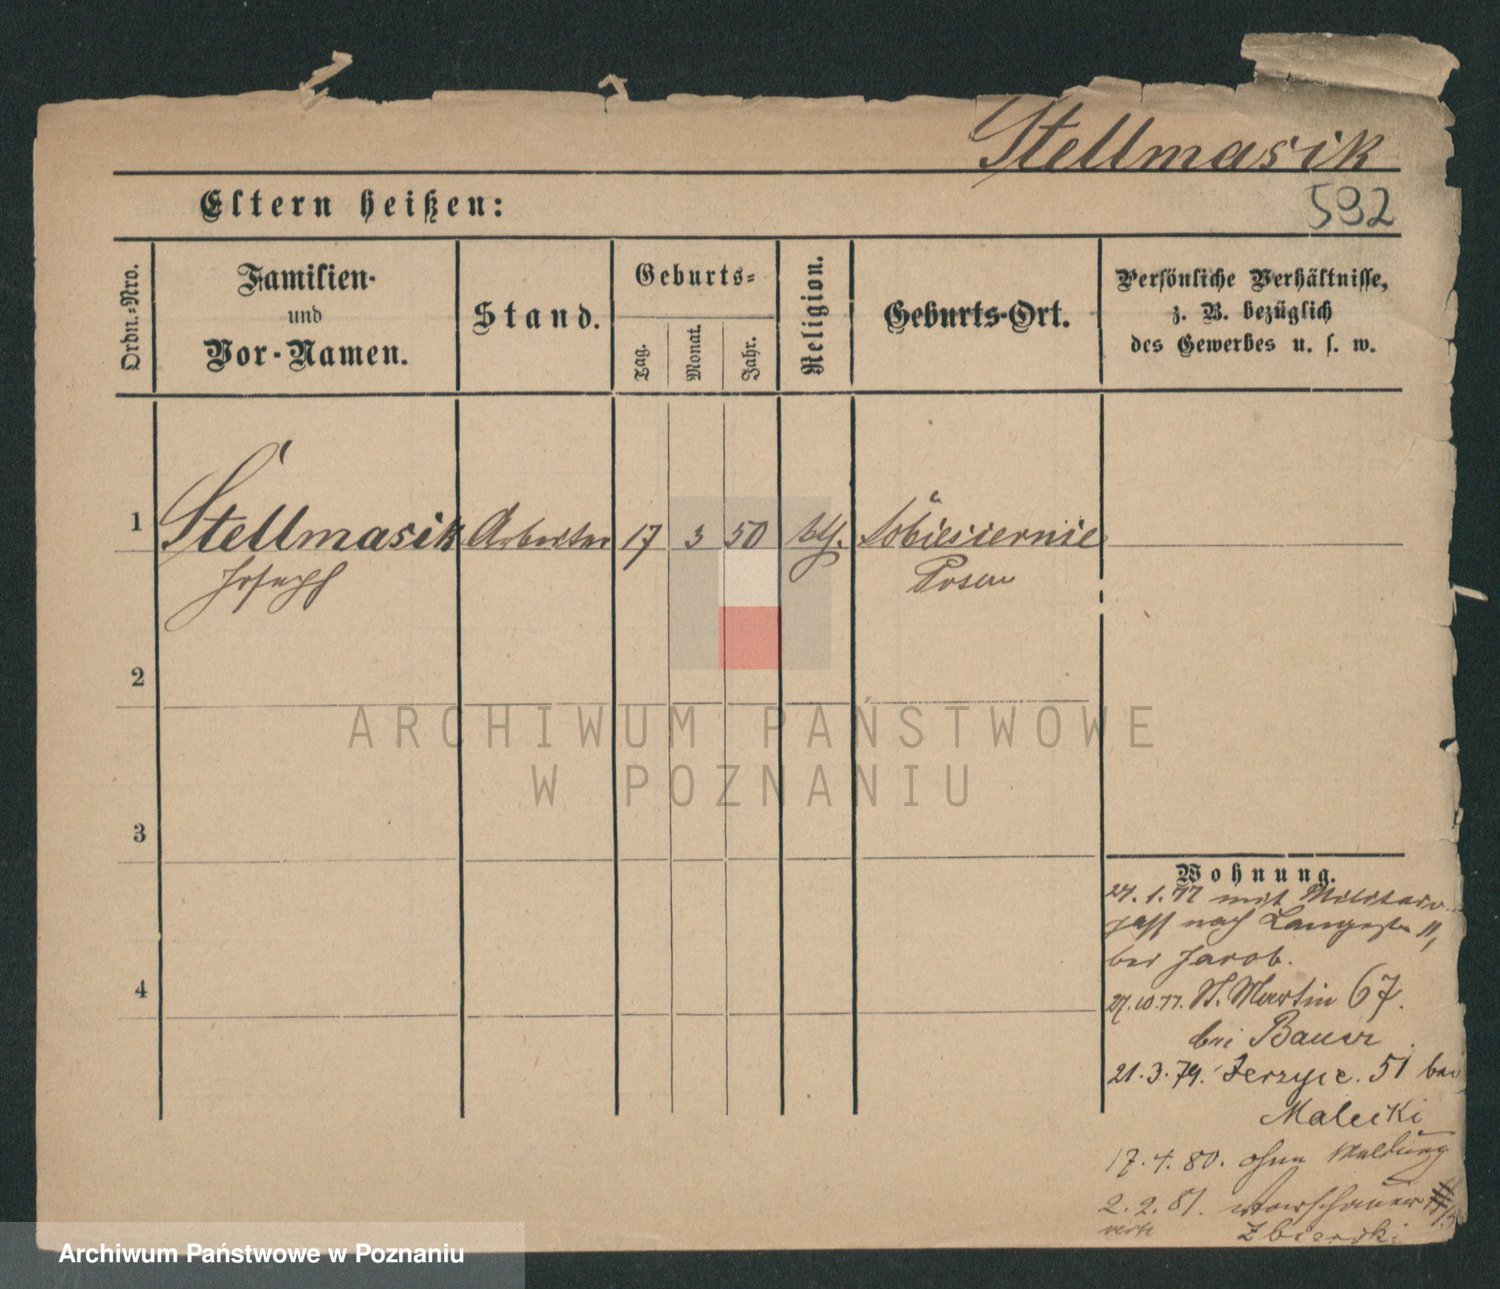 Stellmasik
Eltern heißen:
592
Ordn.-Nro.
Familien-
und
Vor-Namen.
Stand.
Geburts-
Tag.
Monat.
Jahr.
Religion.
Geburts-Ort.
Persönliche Verhältnisse,
z. B. bezüglich
des Gewerbes u. s. w.
1 Stellmasik Arbeiter 17 3 50 kth. Sobiesiernie
Joseph Posen
2
3
4
Wohnung.
27. 1. 77 mit Militair
paß nach Langestr 11,
bei Jacob.
27.10.77. St. Martin 67.
bei Bauer
21.3.79. Jerzyce. 51 bei
Malecki
17.4.80. ohne Meldung
2.2.81. Warschauer
Zbierski
ARCHIWUM PAŃSTWOWE
W POZNANIU
Archiwum Państwowe w Poznaniu